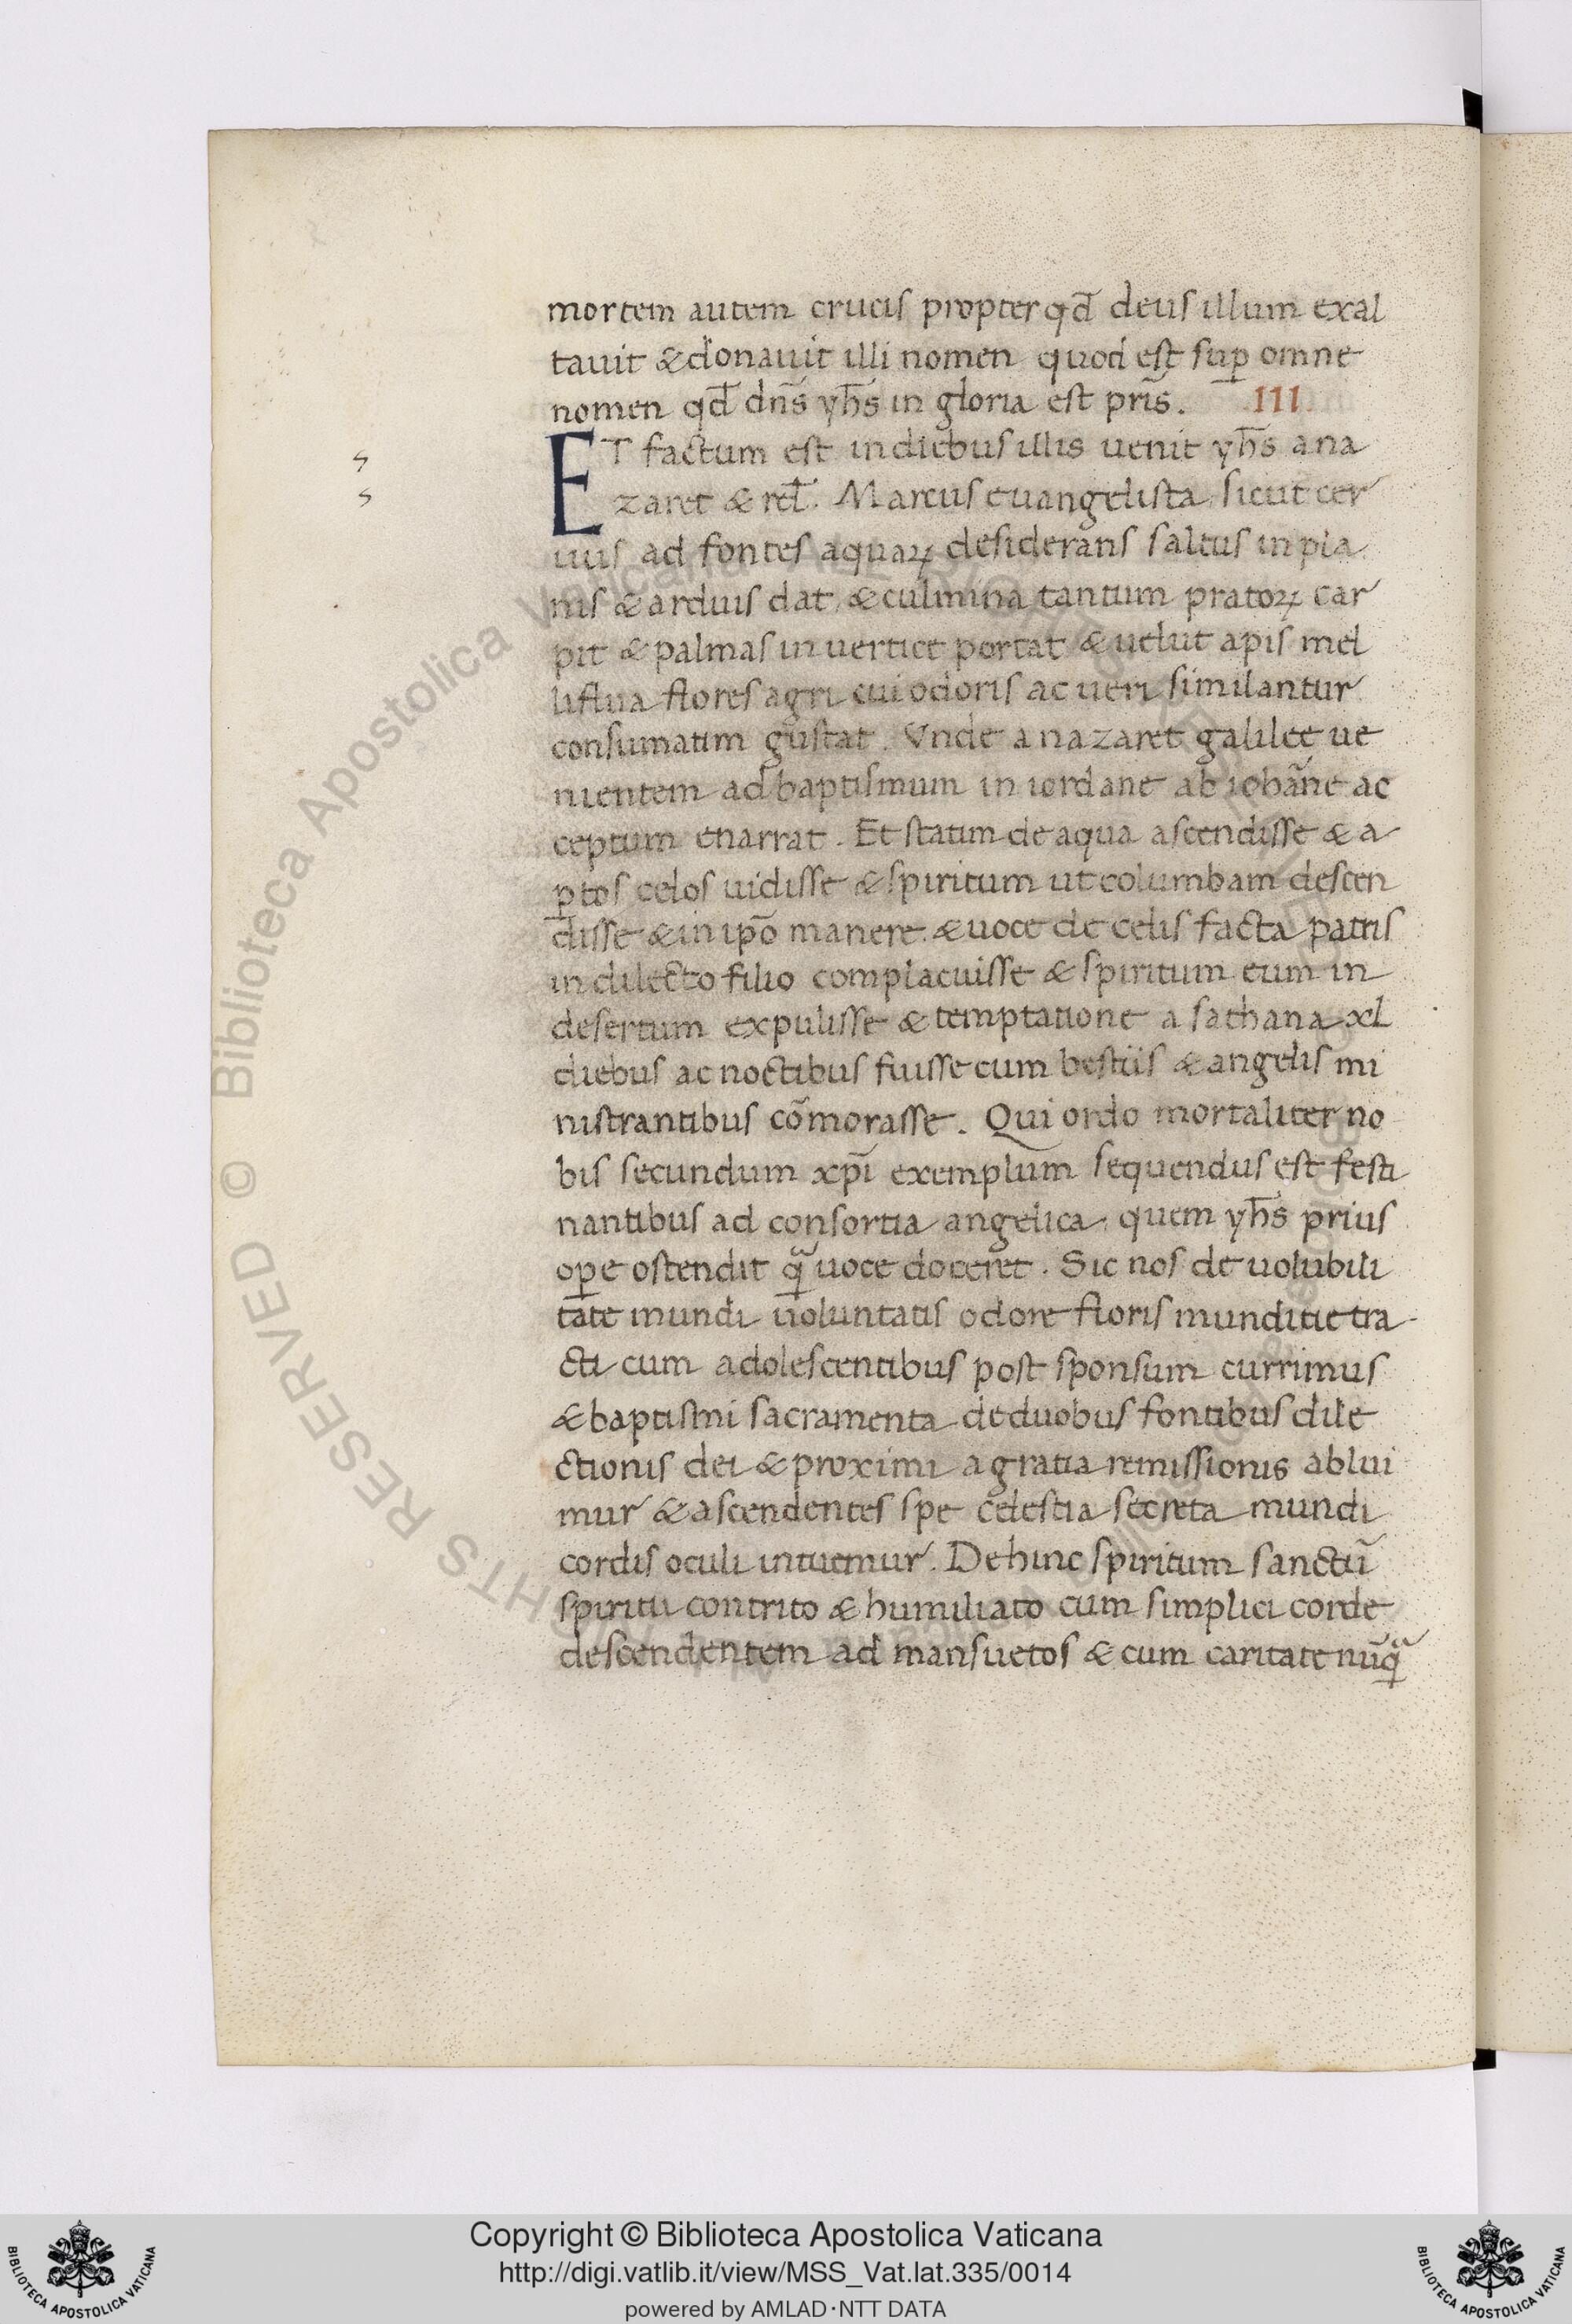 mortem autem crucis propter qđ deus illum exal
tauit &donauit illi nomen quod est suꝑ omne
nomen qđ dns̄ yħs in gloria est pris̄. III
ET factum est indiebus illis uenit yħs ana
zaret & rel̄. Marcus euangelista sicut cer
uus ad fontes aquaꝝ desiderans saltus inpla
nis & arduis dat, &culmina tantum pratoꝝ car
pit & palmas in uertice portat & uelut apis mel
liflua flores agri cui odoris ac ueri similantur
consumatim gustat. Vnde a nazaret galilee ue
nientem ad baptismum in iordane ab iohāne ac
ceptum enarrat. Et statim de aqua ascendisse & a
ꝑtos celos uidisse & spiritum ut columbam descen
disse & in ip̄o manere. & uoce de celis facta patris
in dilecto filio complacuisse & spiritum eum in
desertum expulisse & temptatione a sathana xl
diebus ac noctibus fuisse cum bestiis & angelis mi
nistrantibus cōmorasse. Qui ordo mortaliter no
bis secundum xp̄i exemplum sequendus est festi
nantibus ad consortia angelica, quem yħs prius
oꝑe ostendit qᷓ uoce doceret. Sic nos de uolubili
tate mundi uoluntatis odore floris munditie tra
cti cum adolescentibus post sponsum currimus
& baptismi sacramenta de duobus fontibus dile
ctionis dei & proximi a gratia remissionis ablui
mur & ascendentes spe celestia secreta mundi
cordis oculi intuemur. Dehinc spiritum sanctū
spiritu contrito & humiliato cum simplici corde
descendentem ad mansuetos & cum caritate nūqᷓ
© Biblioteca Apostolica Vaticana
RIGHTS RESERVED
Copyright © Biblioteca Apostolica Vaticana
http://digi.vatlib.it/view/MSS_Vat.lat.335/0014
powered by AMLAD·NTT DATA
BIBLIOTECA APOSTOLICA VATICANA
BIBLIOTECA APOSTOLICA VATICANA